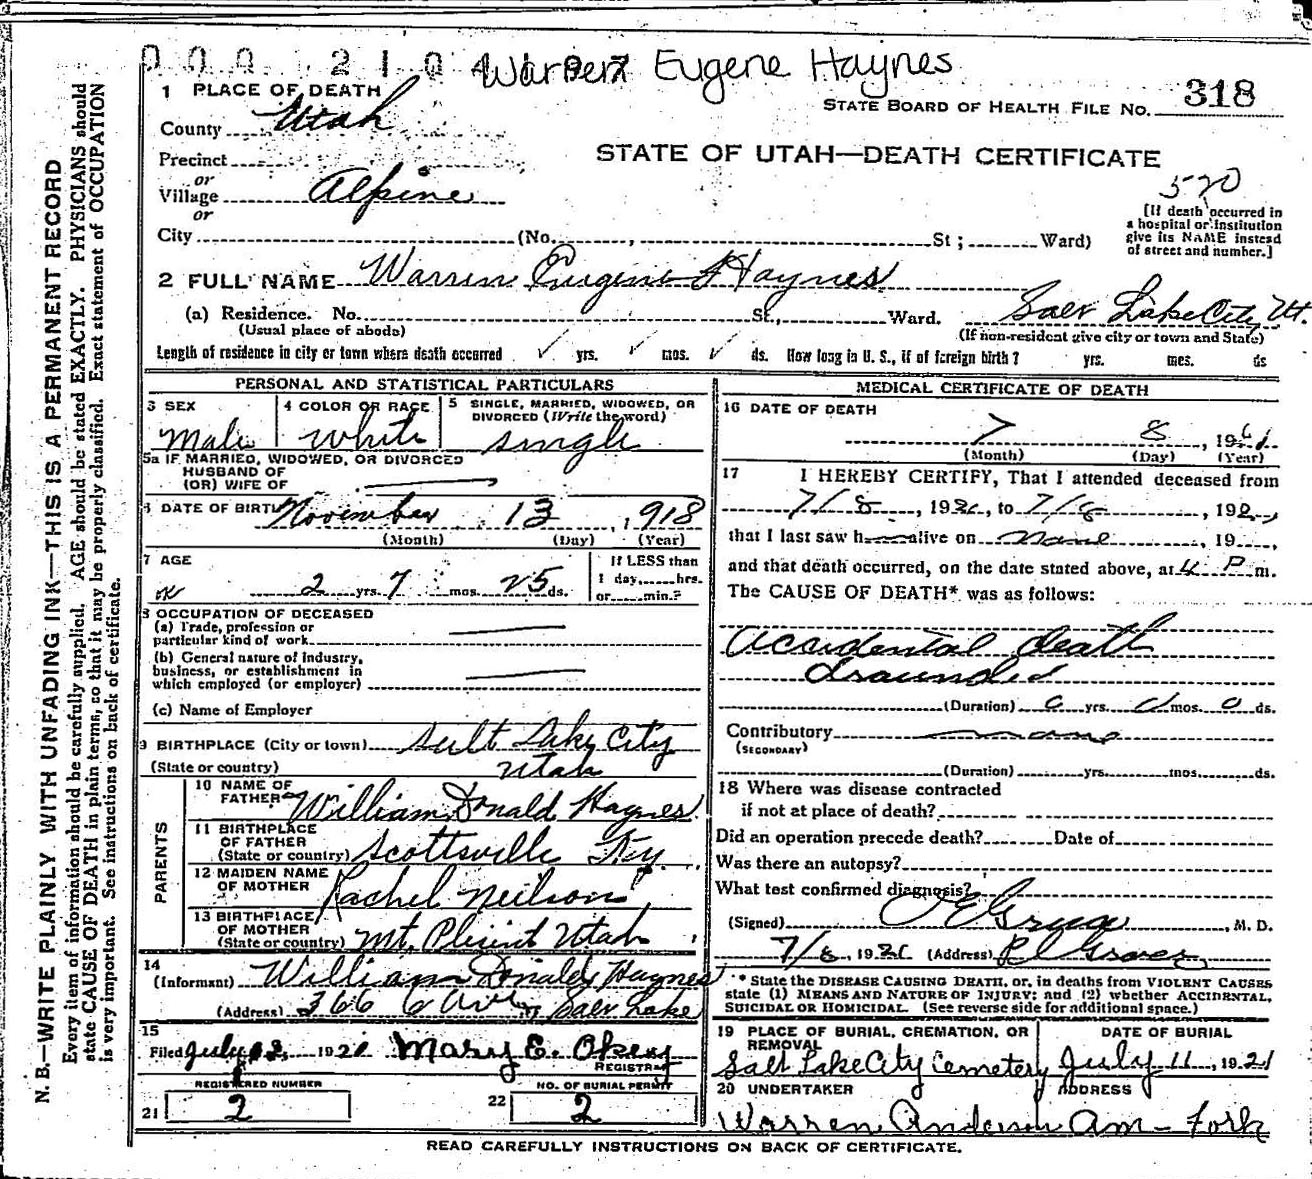 000 210 Warren Eugene Haynes
1 PLACE OF DEATH
STATE BOARD OF HEALTH FILE NO. 318
County Utah
STATE OF UTAH—DEATH CERTIFICATE
Precinct
or
Village Alpine
or
520
[If death occurred in
a hospital or institution
give its NAME instead
of street and number.]
City (No. , St ; Ward)
2 FULL NAME Warren Eugene Haynes
(a) Residence. No. St., Ward. Salt Lake City Ut.
(Usual place of abode) (If non-resident give city or town and State)
Length of residence in city or town where death occurred ✓ yrs. ✓ mos. ✓ ds. How long in U. S., if of foreign birth? yrs. mos. ds
PERSONAL AND STATISTICAL PARTICULARS
3 SEX 4 COLOR OR RACE 5 SINGLE, MARRIED, WIDOWED, OR
DIVORCED (Write the word)
Male White Single
5a IF MARRIED, WIDOWED, OR DIVORCED
HUSBAND OF
(OR) WIFE OF
6 DATE OF BIRTH November 13, 1918
(Month) (Day) (Year)
7 AGE If LESS than
ok 2 yrs. 7 mos. 25 ds. 1 day, hrs.
or min.?
8 OCCUPATION OF DECEASED
(a) Trade, profession or
particular kind of work
(b) General nature of industry,
business, or establishment in
which employed (or employer)
(c) Name of Employer
9 BIRTHPLACE (City or town) Salt Lake City
(State or country) Utah
PARENTS
10 NAME OF
FATHER William Donald Haynes
11 BIRTHPLACE
OF FATHER
(State or country) Scottsville Ky.
12 MAIDEN NAME
OF MOTHER Rachel Neilson
13 BIRTHPLACE
OF MOTHER
(State or country) Mt. Plesent Utah
14
(Informant) William Donald Haynes
(Address) 366 6 Ave Salt Lake
15
Filed July 12, 1921 Mary E. Okey
REGISTRAR
REGISTERED NUMBER NO. OF BURIAL PERMIT
21 2 22 2
MEDICAL CERTIFICATE OF DEATH
16 DATE OF DEATH
7 8, 1921
(Month) (Day) (Year)
17 I HEREBY CERTIFY, That I attended deceased from
7/8, 1921, to 7/8, 192
that I last saw h alive on none, 19
and that death occurred, on the date stated above, at 4 P m.
The CAUSE OF DEATH* was as follows:
Accidental death
drounded
(Duration) 0 yrs. 0 mos. 0 ds.
Contributory none
(SECONDARY)
(Duration) yrs. mos. ds.
18 Where was disease contracted
if not at place of death?
Did an operation precede death? Date of
Was there an autopsy?
What test confirmed diagnosis?
(Signed) , M. D.
7/8, 1921 (Address) Pl Grove
* State the DISEASE CAUSING DEATH, or, in deaths from VIOLENT CAUSES
state (1) MEANS AND NATURE OF INJURY; and (2) whether ACCIDENTAL,
SUICIDAL OR HOMICIDAL. (See reverse side for additional space.)
19 PLACE OF BURIAL, CREMATION, OR
REMOVAL DATE OF BURIAL
Salt Lake City Cemetery July 11, 1921
20 UNDERTAKER ADDRESS
Warren Anderson Am-Fork
READ CAREFULLY INSTRUCTIONS ON BACK OF CERTIFICATE.
N. B.—WRITE PLAINLY WITH UNFADING INK—THIS IS A PERMANENT RECORD
Every item of information should be carefully supplied. AGE should be stated EXACTLY. PHYSICIANS should
state CAUSE OF DEATH in plain terms, so that it may be properly classified. Exact statement of OCCUPATION
is very important. See instructions on back of certificate.